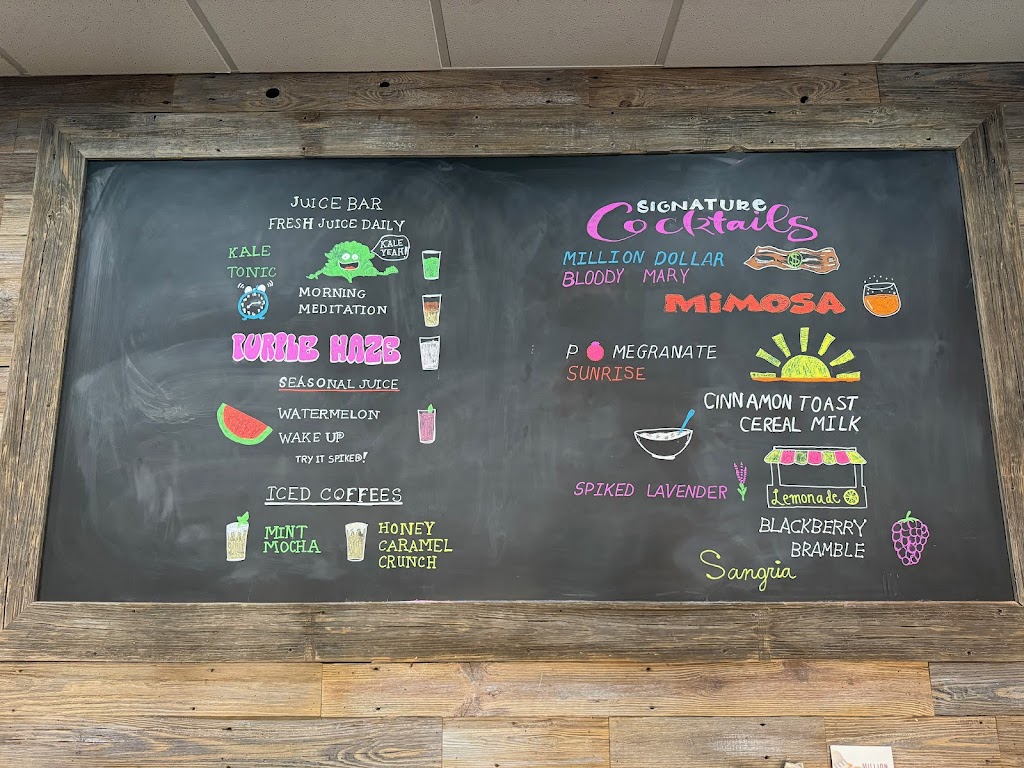 JUICE BAR
FRESH JUICE DAILY
KALE
TONIC
KALE
YEAH!
MORNING
MEDITATION
TURTLE HAZE
SEASONAL JUICE
WATERMELON
WAKE UP
TRY IT SPIKED!
ICED COFFEES
MINT
MOCHA
HONEY
CARAMEL
CRUNCH
SIGNATURE
Cocktails
MILLION DOLLAR
BLOODY MARY
MiMOSA
P MEGRANATE
SUNRISE
CINNAMON TOAST
CEREAL MILK
SPIKED LAVENDER
Lemonade
BLACKBERRY
BRAMBLE
Sangria
MILLION